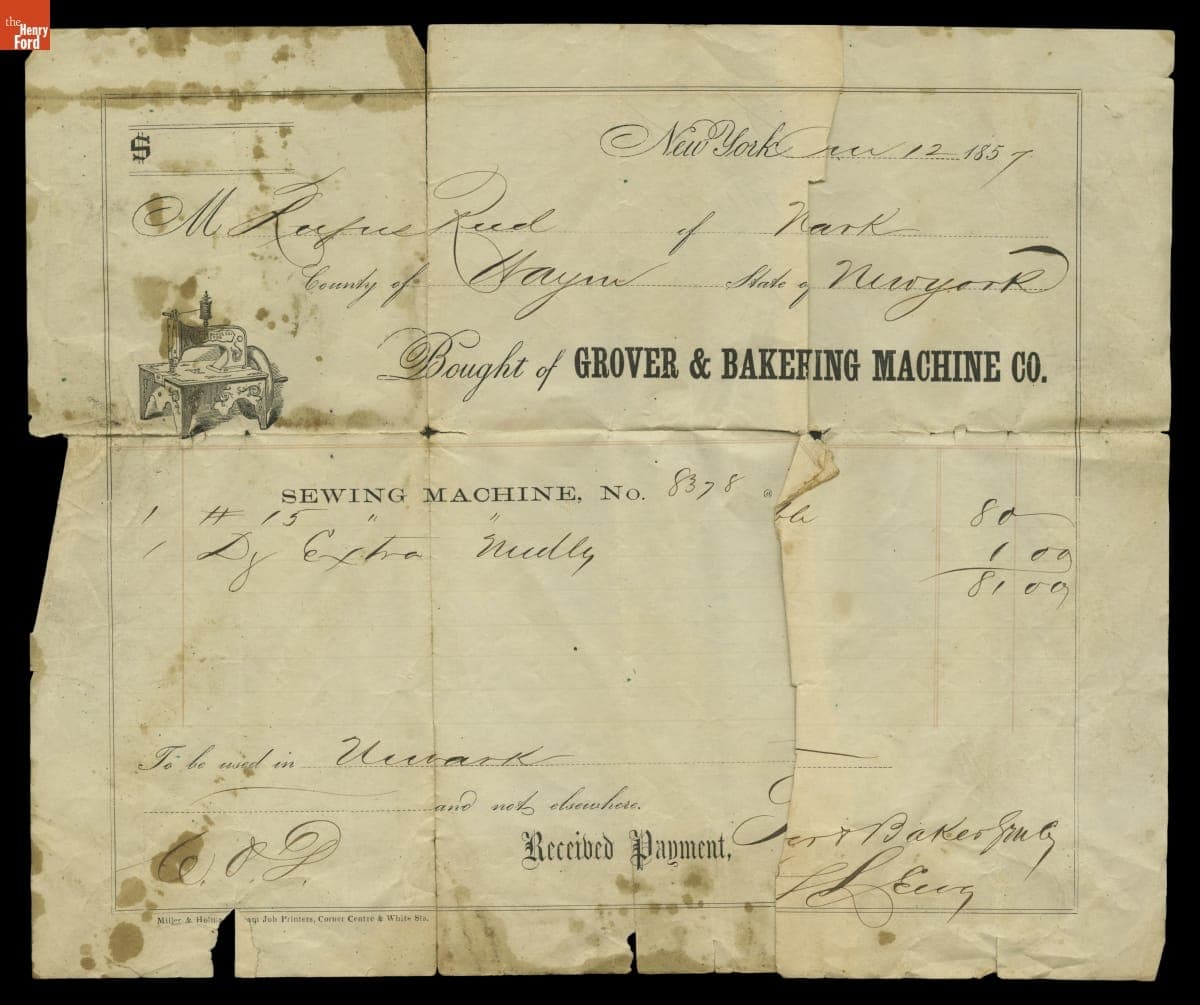 the
Henry
Ford
$
New York 12 1857
M Rufus Reed of wark
County of Wayne State of Newyork
Bought of GROVER & BAKER ING MACHINE CO.
SEWING MACHINE, No. 8378 @
1 # 15 " " ble 80
1 Dz Extra Needls 1 00
81 00
To be used in Newark
and not elsewhere.
C. O. D.
Received Payment, Baker
Miller & Holm am Job Printers, Corner Centre & White Sts.